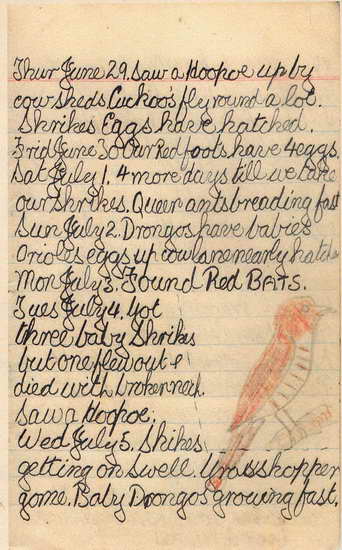 Thur June 29. Saw a Hoopoe up by
cow sheds. Cuckoo's fly round a lot.
Shrikes Eggs have hatched.
Frid June 30 Our Red foots have 4 eggs.
Sat July 1. 4 more days till we take
our Shrikes. Queer ants breading fast
Sun July 2. Drongos have babies
Oriols eggs up cow lane nearly
Mon July 3. Found Red BATS.
Tues July 4. Got
three baby Shrikes
but one flew out &
died with broken neck.
Saw a Hoopoe.
Wed July 5. Shikes
getting on swell. Grasshopper
game. Baby Drongos growing fast.